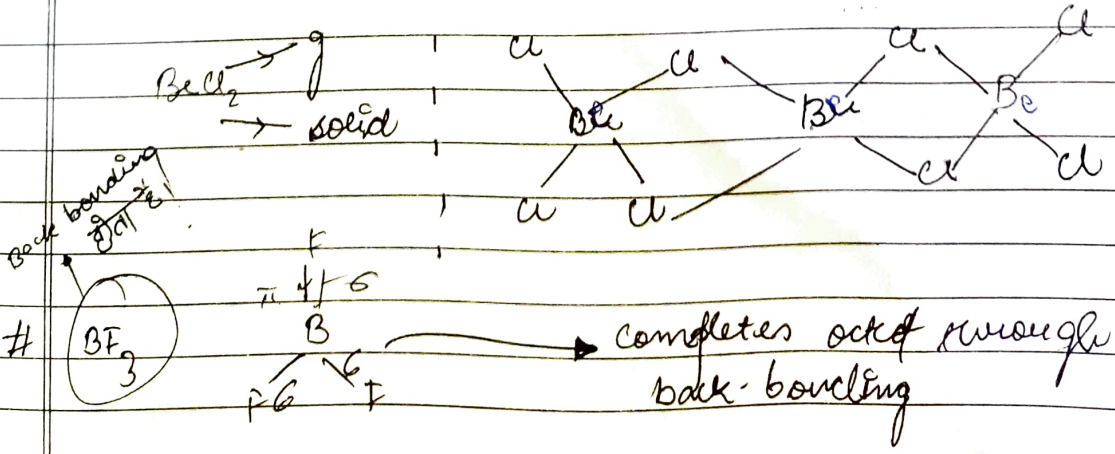 BeCl2 → g
→ solid
Cl Cl Cl Cl
Be Be Be
Cl Cl Cl Cl
Back bonding
F
π σ
# BF3 B → completes octet through
F σ σ F back-bonding